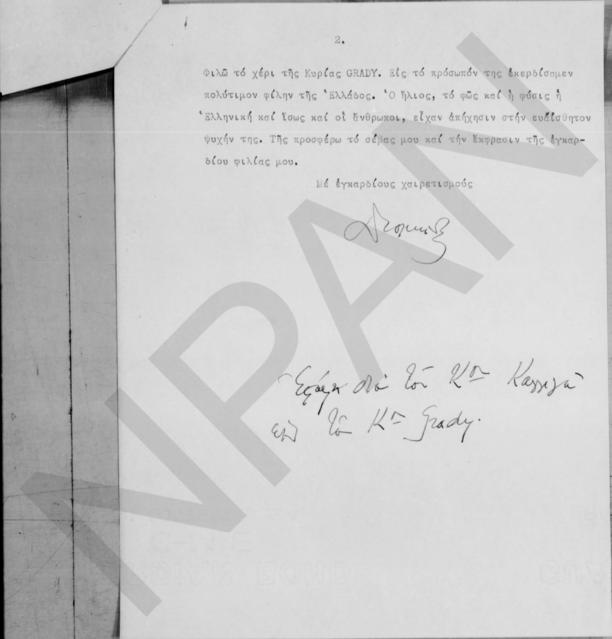 2.
Φιλῶ τό χέρι τῆς Κυρίας GRADY. Εἰς τό πρόσωπόν της ἐκερδίσαμεν
πολύτιμον φίλην τῆς Ἑλλάδος. Ὁ ἥλιος, τό φῶς καί ἡ φύσις ἡ
Ἑλληνική καί ἴσως καί οἱ ἄνθρωποι, εἶχαν ἀπήχησιν στήν εὐαίσθητον
ψυχήν της. Τῆς προσφέρω τό σέβας μου καί τήν ἔκφρασιν τῆς ἐγκαρ-
δίου φιλίας μου.
Μέ ἐγκαρδίους χαιρετισμούς
διά τοῦ Κου
τόν Κον Grady.
NRPAN